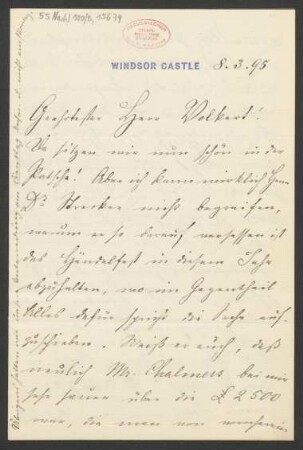 55 Nachl 100/B, 13579
WINDSOR CASTLE 8.3.95
Geehrtester Herr Volkert!
Da sitzen wir nun schön in der
Patsche! Aber ich kann wirklich Herrn
Dr Strecker nicht begreifen,
warum er so darauf versessen ist
das Händelfest in diesem Jahr
abzuhalten, wo im Gegentheil
Alles dafür spricht die Sache auf-
zuschieben. Weiß er auch, daß
neulich Mr. Chalmers bei mir
sehr sauer über die £2500
war, die man von vornherein